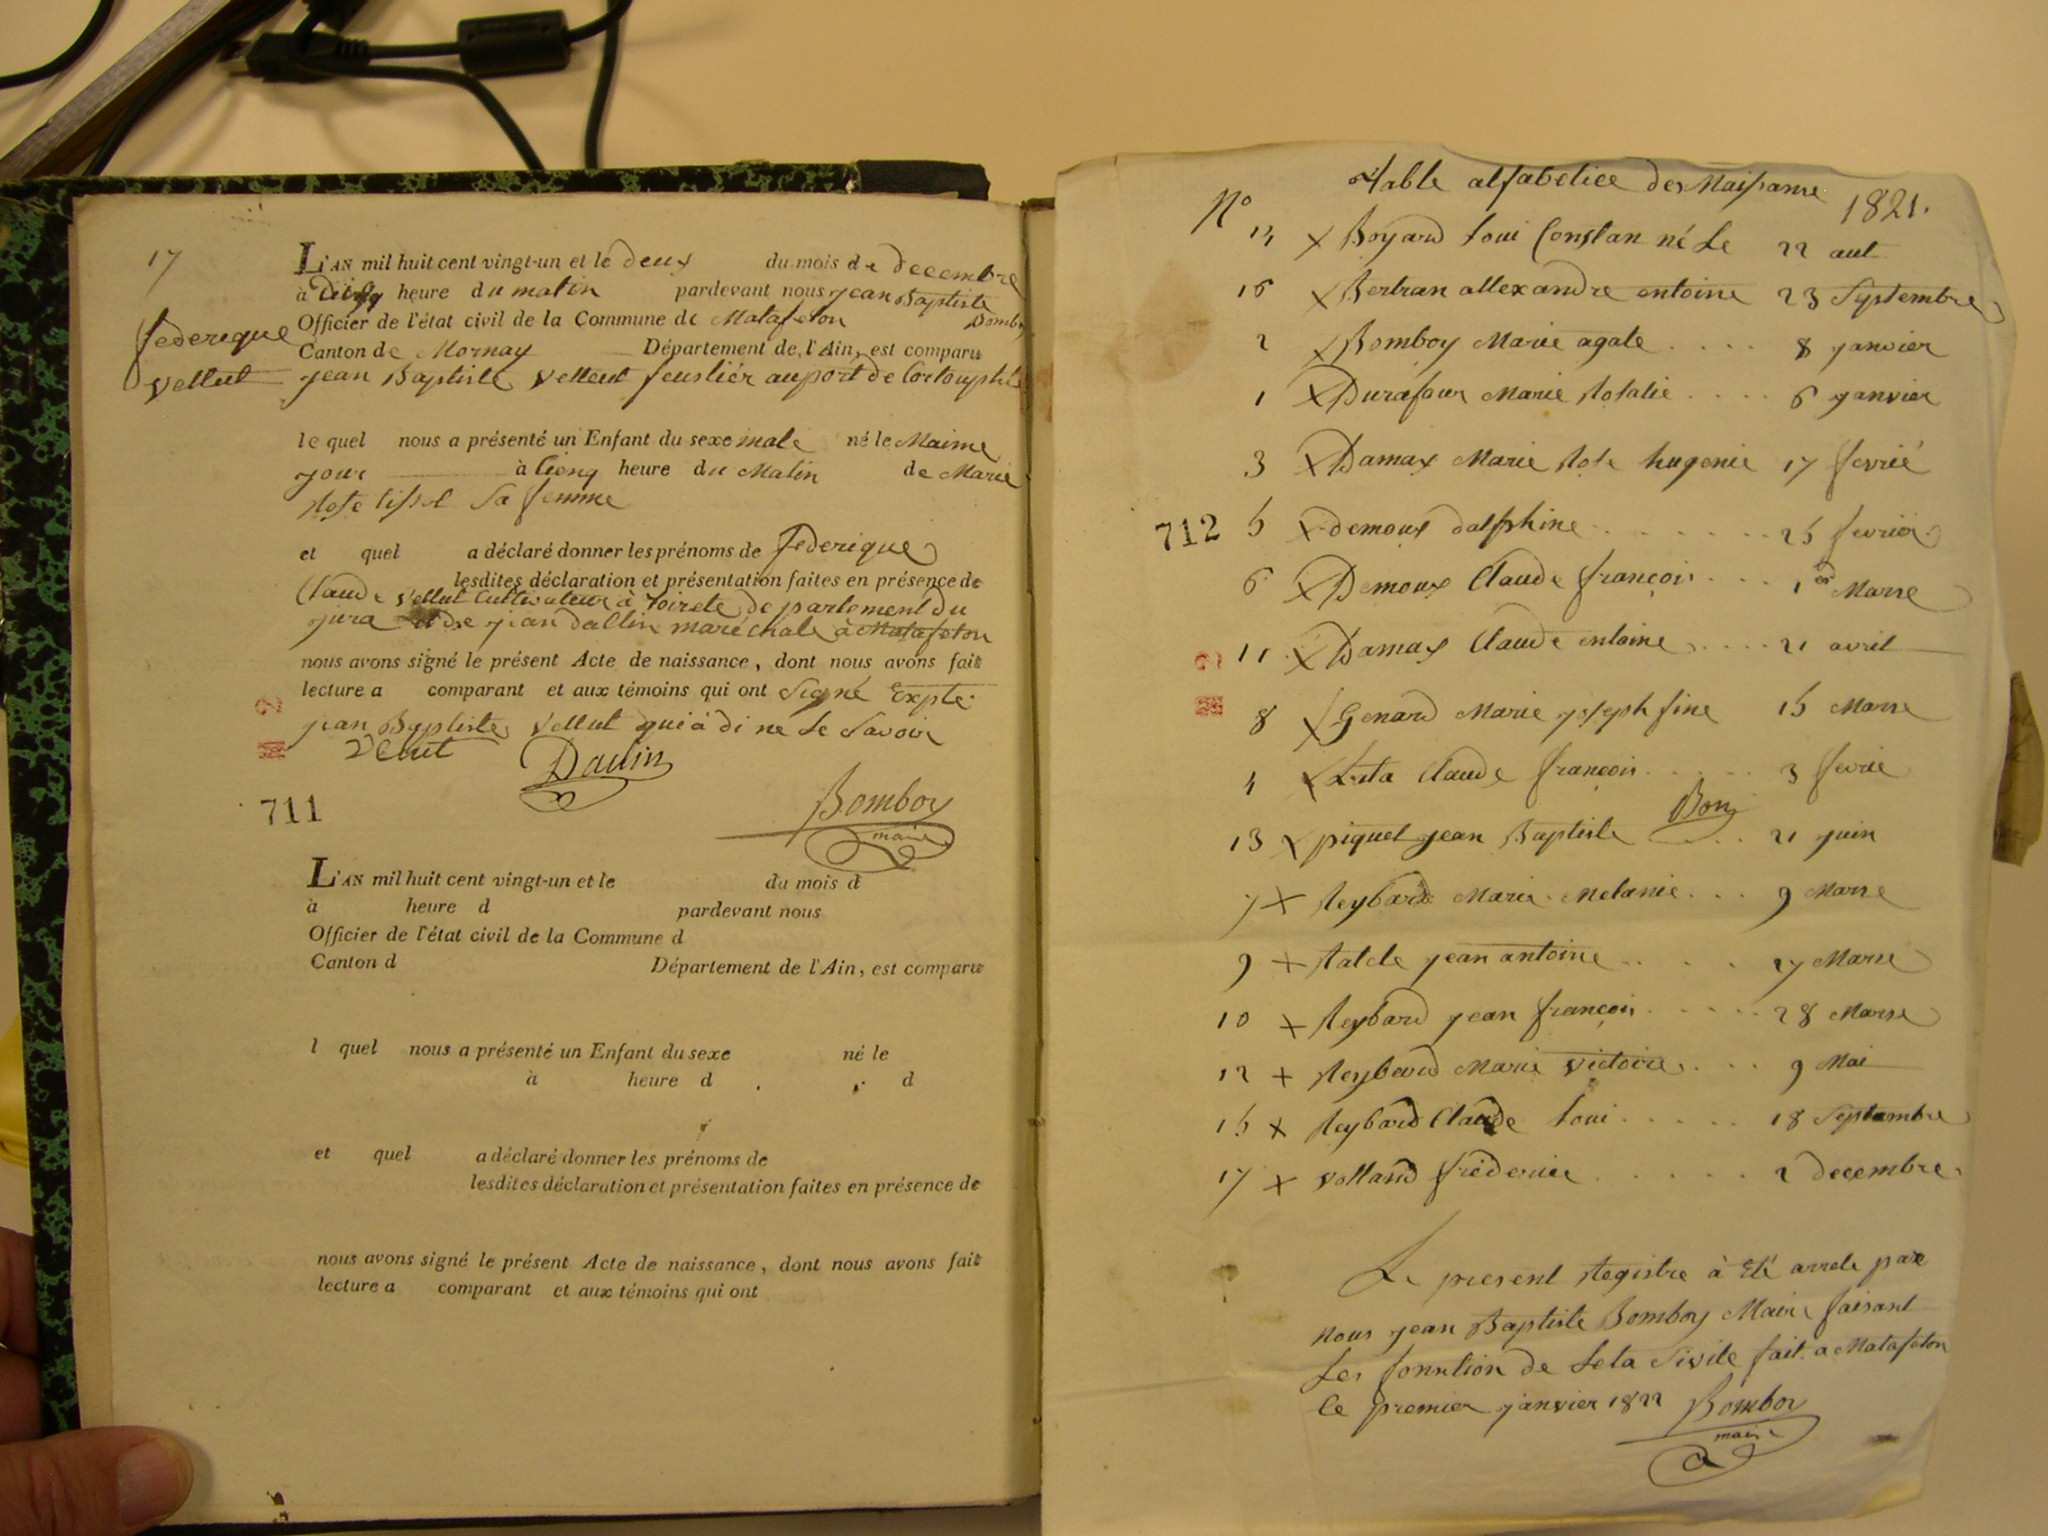 17
L'AN mil huit cent vingt-un et le deux du mois de decembre
à heure du matin pardevant nous jean Baptiste
Bomboy
Officier de l'état civil de la Commune de Matafelon
Canton de Mornay Département de l'Ain, est comparu
federique
vellut
jean Baptiste vellut au port de
le quel nous a présenté un Enfant du sexe male né le Maime
jour à heure du Matin de Marie
Rose tissot Sa femme
et quel a déclaré donner les prénoms de federique
lesdites déclaration et présentation faites en présence de
Claude vellut Cultivateur à Toirete departement du
jura et de jean dallin maréchale à Matafelon
nous avons signé le présent Acte de naissance, dont nous avons fait
lecture a comparant et aux témoins qui ont Signé Expte
jean Baptiste vellut qui à di ne le Savoir
Daulin
Bomboy
maire
711
L'AN mil huit cent vingt-un et le du mois d
à heure d pardevant nous
Officier de l'état civil de la Commune d
Canton d Département de l'Ain, est comparu
l quel nous a présenté un Enfant du sexe né le
à heure d d
et quel a déclaré donner les prénoms de
lesdites déclaration et présentation faites en présence de
nous avons signé le présent Acte de naissance, dont nous avons fait
lecture a comparant et aux témoins qui ont
Table alfabetice des Naissance 1821.
No
14 x Boyard Loui Constan né Le 22 aut
16 x Bertran allexandre entoine 23 Septembre
2 x Bomboy Marie agate .... 8 janvier
1 x Durafour Marie Rosalie .... 6 janvier
3 x Damax Marie Rose hugenie 17 fevrié
712
5 x demoux dalphine ....... 25 fevrier
6 x Demoux Claude françois ... 1er Marse
11 x Damax Claude entoine .... 21 avril
8 x Genard Marie joseph fine 15 Marse
4 x Claude françois ..... 3 fevrie
13 x piquet jean Baptiste Bon .. 21 juin
7 x Reybard Marie Melanie ... 9 Marse
9 x jean antoine .... 27 Marse
10 x Reybard jean françois ..... 28 Marse
12 x Reybard Marie victoire ... 9 Mai
15 x Reybard Claude Loui ..... 18 Septembre
17 x volland fréderice ...... 2 decembre
Le present Registre à Eté arrete par
nous jean Baptiste Bomboy Maire faisant
Les fonction de Leta Sivile fait a Matafelon
le premier janvier 1822 Bomboy
maire